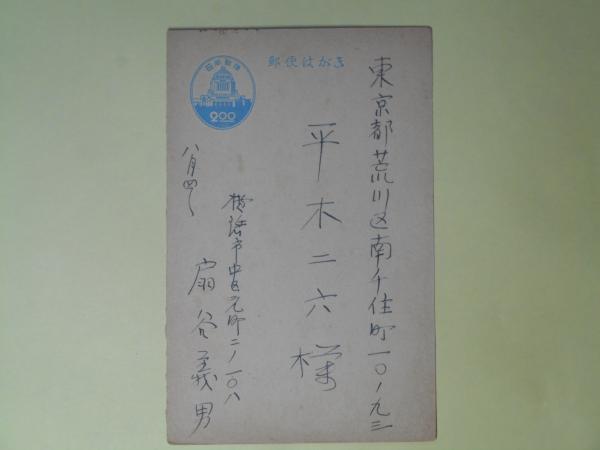 郵便はがき
日本郵便
2.00
東京都荒川区南千住町一〇ノ九三
平木二六様
横浜市中区元町二ノ一〇八
扇谷義男
八月四日